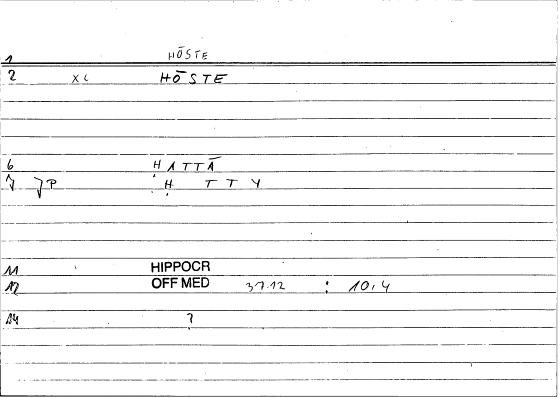 1 HŌSTE
2 XL HŌSTE
6 HATTĀ
7 JP H TTY
11 HIPPOCR
12 OFF MED 37.12 : 10,4
14 ?